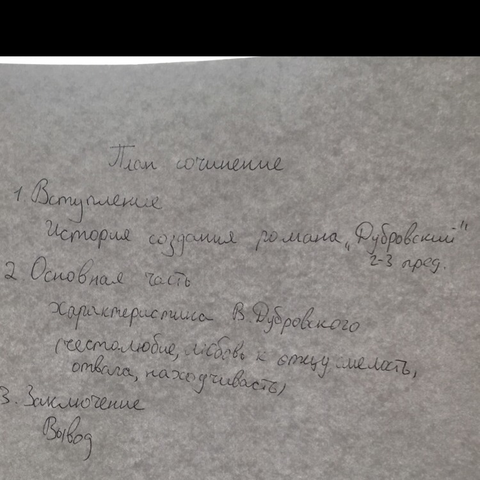 План сочинение
1. Вступление
История создания романа „Дубровский"
2-3 пред.
2 Основная часть
Характеристика В. Дубровского
(честолюбие, любовь к отцу, смелость,
отвага, находчивость)
3. Заключение
Вывод